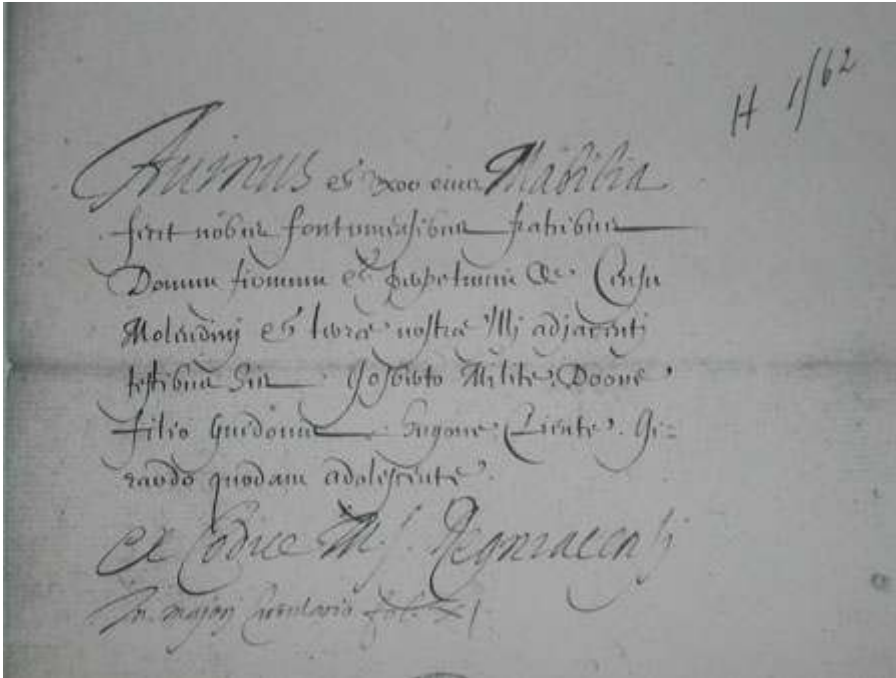 H 1/62
Auinus et uxor eius Mabilia
fecit nobus fontismensibus fratribus
Donum firmum et perpetuum de Censu
Molendinj et terræ nostræ illi adjacenti
testibus his Josberto Milite. Doone
filio Guidonis Hugone Cliente. Gi=
raudo quodam adolescente.
ex Codice M. S.
In majori Cartulario fol. XI